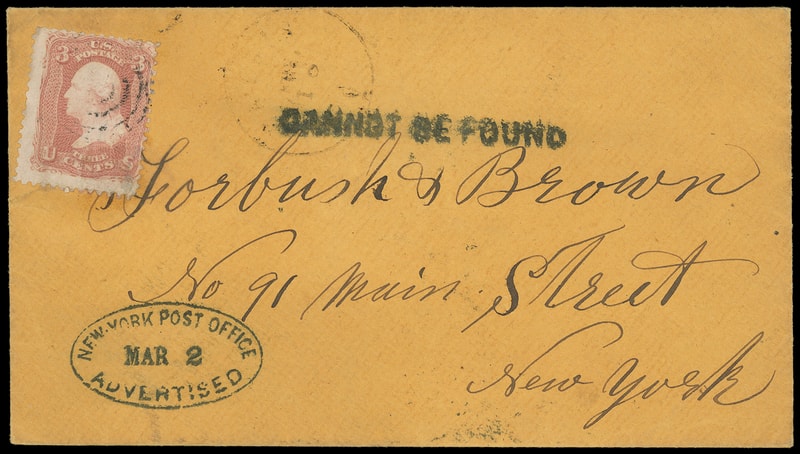 3 U.S. 3
POSTAGE
U THREE S
CENTS
CANNOT BE FOUND
Forbush & Brown
No 91 Main Street
New York
NEW-YORK POST OFFICE
MAR 2
ADVERTISED